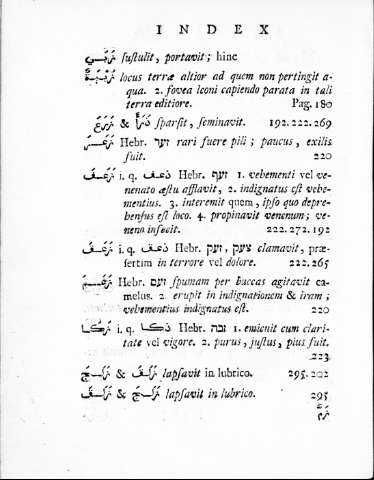 INDEX
زَبَى sustulit, portavit; hinc
زُبْيَةٌ locus terræ altior ad quem non pertingit a-
qua. 2. fovea leoni capiendo parata in tali
terra editiore. Pag. 180
زَرَعَ & ذَرَأَ sparsit, seminavit. 192. 222. 269
زَعَرَ Hebr. זער rari fuere pili; paucus, exilis
fuit. 220
زَعَفَ i. q. ذعف Hebr. זעף 1. vehementi vel ve-
nenato æstu afflavit, 2. indignatus est vehe-
mentius. 3. interemit quem, ipso quo depre-
hensus est loco. 4. propinavit venenum; ve-
neno infecit. 222. 272. 192
زَعَقَ i. q. ذعق Hebr. צעק, זעק clamavit, præ-
sertim in terrore vel dolore. 222. 265
زَعَمَ Hebr. זעם spumam per buccas agitavit ca-
melus. 2. erupit in indignationem & iram;
vehementius indignatus est. 220
زَكَا i. q. ذكا Hebr. זכה 1. emicuit cum clari-
tate vel vigore. 2. purus, justus, pius fuit.
223.
زَلَجَ & زَلَفَ lapsavit in lubrico. 295. 202
زَلَفَ & زَلَجَ lapsavit in lubrico. 295
زَمَّ